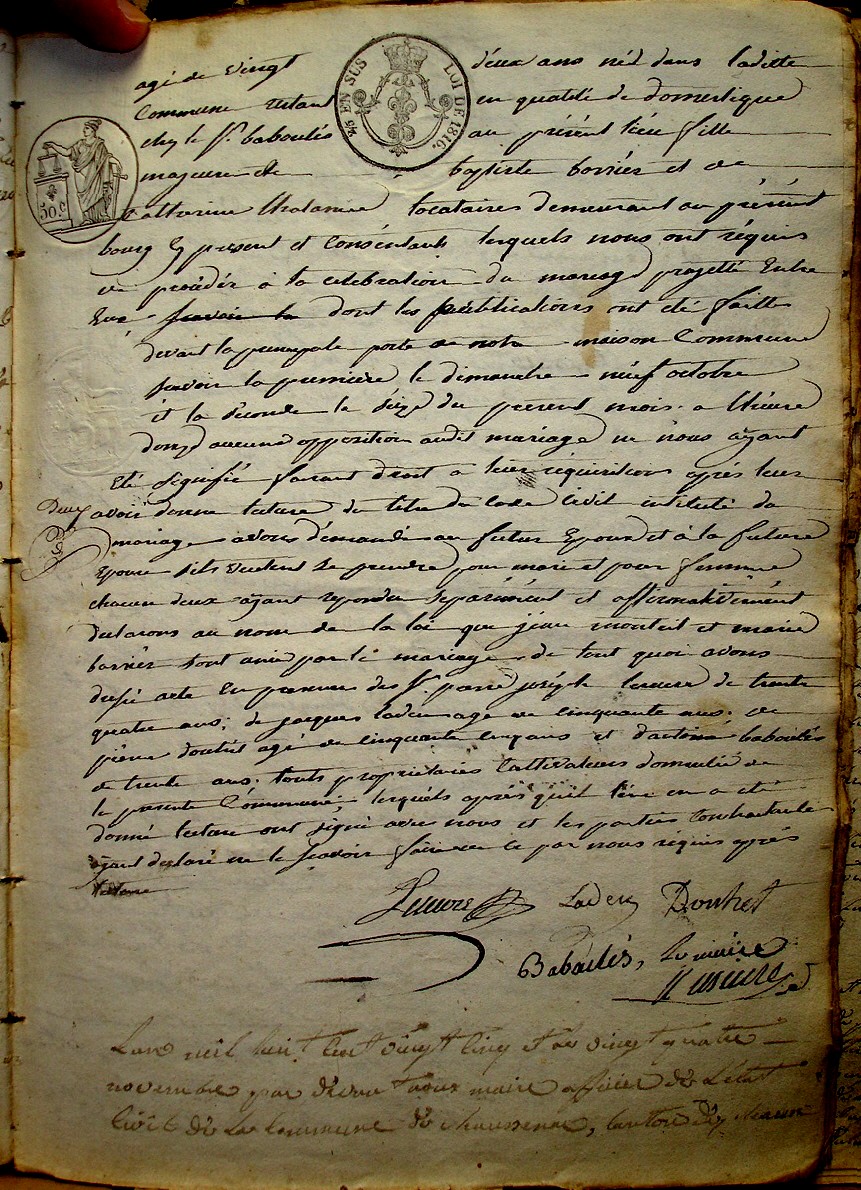 25 EN SUS LOI DE 1816.
50.c
agé de vingt deux ans né dans laditte
Commune restant en qualité de domestique
chez le Sr. baboulés au présent lieu fille
mageure de baptiste borriés et de
Catherine locataires demeurant au présent
bourg Cy present et Consentant lesquels nous ont réquis
de proceder à la celebration du mariage projetté Entre
Eux dont les publications ont eté faittes
devant la principale porte de notre maison Commune
savoir la premiere le dimanche neuf octobre
et la séconde le séize du present mois a l'héure
donze aucune opposition audit mariage ne nous ayant
Eté signifié faisant droit a leurs réquisitions après leur
avoir donné lecture du titre du Code Civil intitulé du
mariage avons démandé au futur Epoux et à la future
Epouse s'ils veulent se prendre pour mari et pour femme
chacun deux ayant repondu séparément et affirmativement
declarons au nom de la loi que jean monteil et marie
borriés sont unis par le mariage de tout quoi avons
dressé acte En presence des Sr. pierre joséph de trente
quatre ans; de jacques ladeu agé de cinquante ans; de
pierre douhet agé de cinquante cinq ans et d'antoine baboulés
de trente ans. touts propriétaires Cultivateurs domicilié de
la presente Commune, lesquels après qu'il leur en a eté
donné lecture ont signé avec nous et les parties Contractantes
ayant declaré ne le savoir faire de ce par nous réquis après
lecture
Ladeu Douhet
Baboulés, Le maire
L'an mil huit Cent vingt Cinq et le vingt quatre
novembre par devant nous maire officier de L'état
Civil de La Commune de chaussenac, Canton de